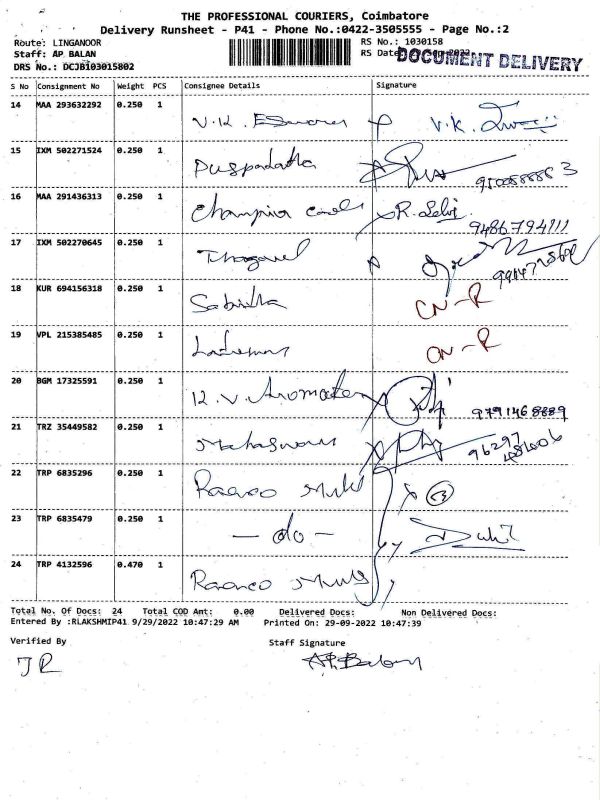 THE PROFESSIONAL COURIERS, Coimbatore
Delivery Runsheet - P41 - Phone No.:0422-3505555 - Page No.:2
Route: LINGANOOR RS No.: 1030158
Staff: AP BALAN RS Date
DOCUMENT DELIVERY
DRS No.: DCJB103015802
S No Consignment No Weight PCS Consignee Details Signature
14 MAA 293632292 0.250 1 V.K. V.K.
15 IXM 502271524 0.250 1
16 MAA 291436313 0.250 1 Champion R. Selvi
9486794111
17 IXM 502270645 0.250 1
18 KUR 694156318 0.250 1 Sabitha CN-R
19 VPL 215385485 0.250 1 CN-R
20 BGM 17325591 0.250 1 K.V. Aromatex
9791468889
21 TRZ 35449582 0.250 1
96297
22 TRP 6835296 0.250 1 (3)
23 TRP 6835479 0.250 1 - do -
24 TRP 4132596 0.470 1
Total No. Of Docs: 24 Total COD Amt: 0.00 Delivered Docs: Non Delivered Docs:
Entered By :RLAKSHMIP41 9/29/2022 10:47:29 AM Printed On: 29-09-2022 10:47:39
Verified By Staff Signature
JR AP. Balan